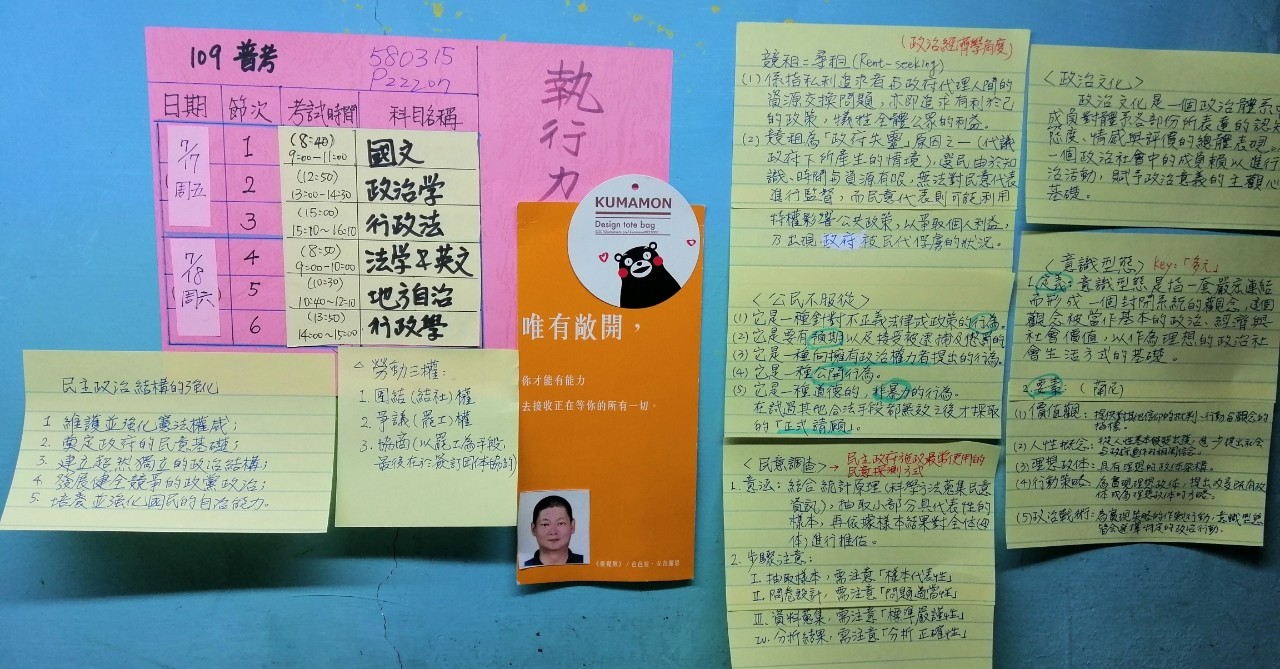 109 普考
580315
Pazzon
日期 節次 考試時間 科目名稱
7/17 周五
1 (8:40) 9:00-11:00 國文
2 (12:50) 13:00-14:30 政治学
3 (15:00) 16:10 行政法
7/18 周六
4 (8:50) 9:00-10:00 法学&英文
5 (10:30) 10:40-12:10 地方自治
6 (13:50) 14:00-15:00 行政學
執行力
KUMAMON
Design tote bag
唯有敞開，
你才能有能力
去接收正在等你的所有一切。
民主政治結構的強化
1 維護並強化憲法權威；
2. 奠定政府的民意基礎；
3. 建立超然獨立的政治結構；
4. 發展健全競爭的政黨政治；
5. 培養並強化國民的自治能力。
△ 勞動三權：
1. 團結(結社)權
2. 爭議(罷工)權
3. 協商(以罷工為手段，
最後在於簽訂團體協約)
(政治經濟學角度)
競租=尋租(Rent-seeking)
(1) 係指私利追求者與政府代理人間的
資源交換問題，亦即追求有利於己
的政策，犧牲全體公眾的利益。
(2) 競租為「政府失靈」原因之一(代議
政府下所產生的情境)，選民由於知
識、時間與資源有限，無法對民意代表
進行監督，而民意代表則可能利用
特權影響公共政策，以爭取個人利益，
乃出現政府被民代俘虜的狀況。
〈公民不服從〉
(1) 它是一種針對不正義法律或政策的行為。
(2) 它是要有預期以及接受被逮捕及懲罰的
(3) 它是一種向擁有政治權力者提出的行為。
(4) 它是一種公開行為。
(5) 它是一種道德的，非暴力的行為。
在試過其他合法手段都無效之後才採取
的「正式請願」。
〈民意調查〉→ 民主政府施政最常使用的
民意探測方式
1. 意涵：結合統計原理(科學方法蒐集民意
資訊)，抽取小部分具代表性的
樣本，再依據樣本結果對全体(母
体)進行推估。
2. 步驟注意：
I. 抽取樣本，需注意「樣本代表性」
II. 問卷設計，需注意「問題適當性」
III. 資料蒐集，需注意「標準嚴謹性」
IV. 分析結果，需注意「分析正確性」
〈政治文化〉
政治文化是一個政治體系
成員對體系各部份所表達的認知
態度、情感與評價的總體表現。
一個政治社會中的成員賴以進行
治活動，賦予政治意義的主觀心
基礎。
〈意識型態〉key：「多元」
1. 定義：意識型態是指一套嚴密連結
而形成一個封閉系統的觀念，這個
觀念被當作基本的政治、經濟與
社會價值，以作為理想的政治社
會生活方式的基礎。
2. 要素：
(1) 價值觀：
(2) 人性概念：
(3) 理想政体：具有理想的政体架構。
(4) 行動策略：為實現理想政体，提出改變既有政
体成為理想政体的方略。
(5) 政治戰術：為實現策略的作戰行動，意識型態
皆會選擇特定的政治行動。